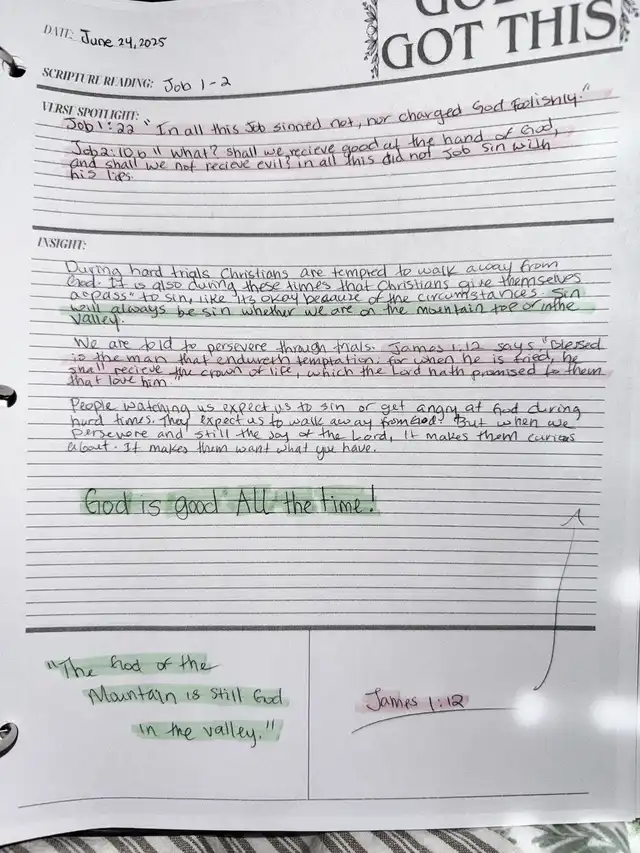 GOD
GOT THIS
DATE: June 24, 2025
SCRIPTURE READING: Job 1-2
VERSE SPOTLIGHT:
Job 1:22 "In all this Job sinned not, nor charged God foolishly."
Job 2:10b "What? shall we recieve good at the hand of God,
and shall we not recieve evil? in all this did not Job sin with
his lips.
INSIGHT:
During hard trials Christians are tempted to walk away from
God. It is also during these times that Christians give themselves
a "pass" to sin, like its okay because of the circumstances. Sin
will always be sin whether we are on the mountain top or in the
valley.
We are told to persevere through trials. James 1:12 says "Blessed
is the man that endureth temptation: for when he is tried, he
shall recieve the crown of life, which the Lord hath promised to them
that love him."
People watching us expect us to sin or get angry at God during
hard times. They expect us to walk away from God. But when we
persevere and still the joy of the Lord, It makes them curious
about. It makes them want what you have.
God is good All the time!
"The God of the
Mountain is still God
in the valley."
James 1:12